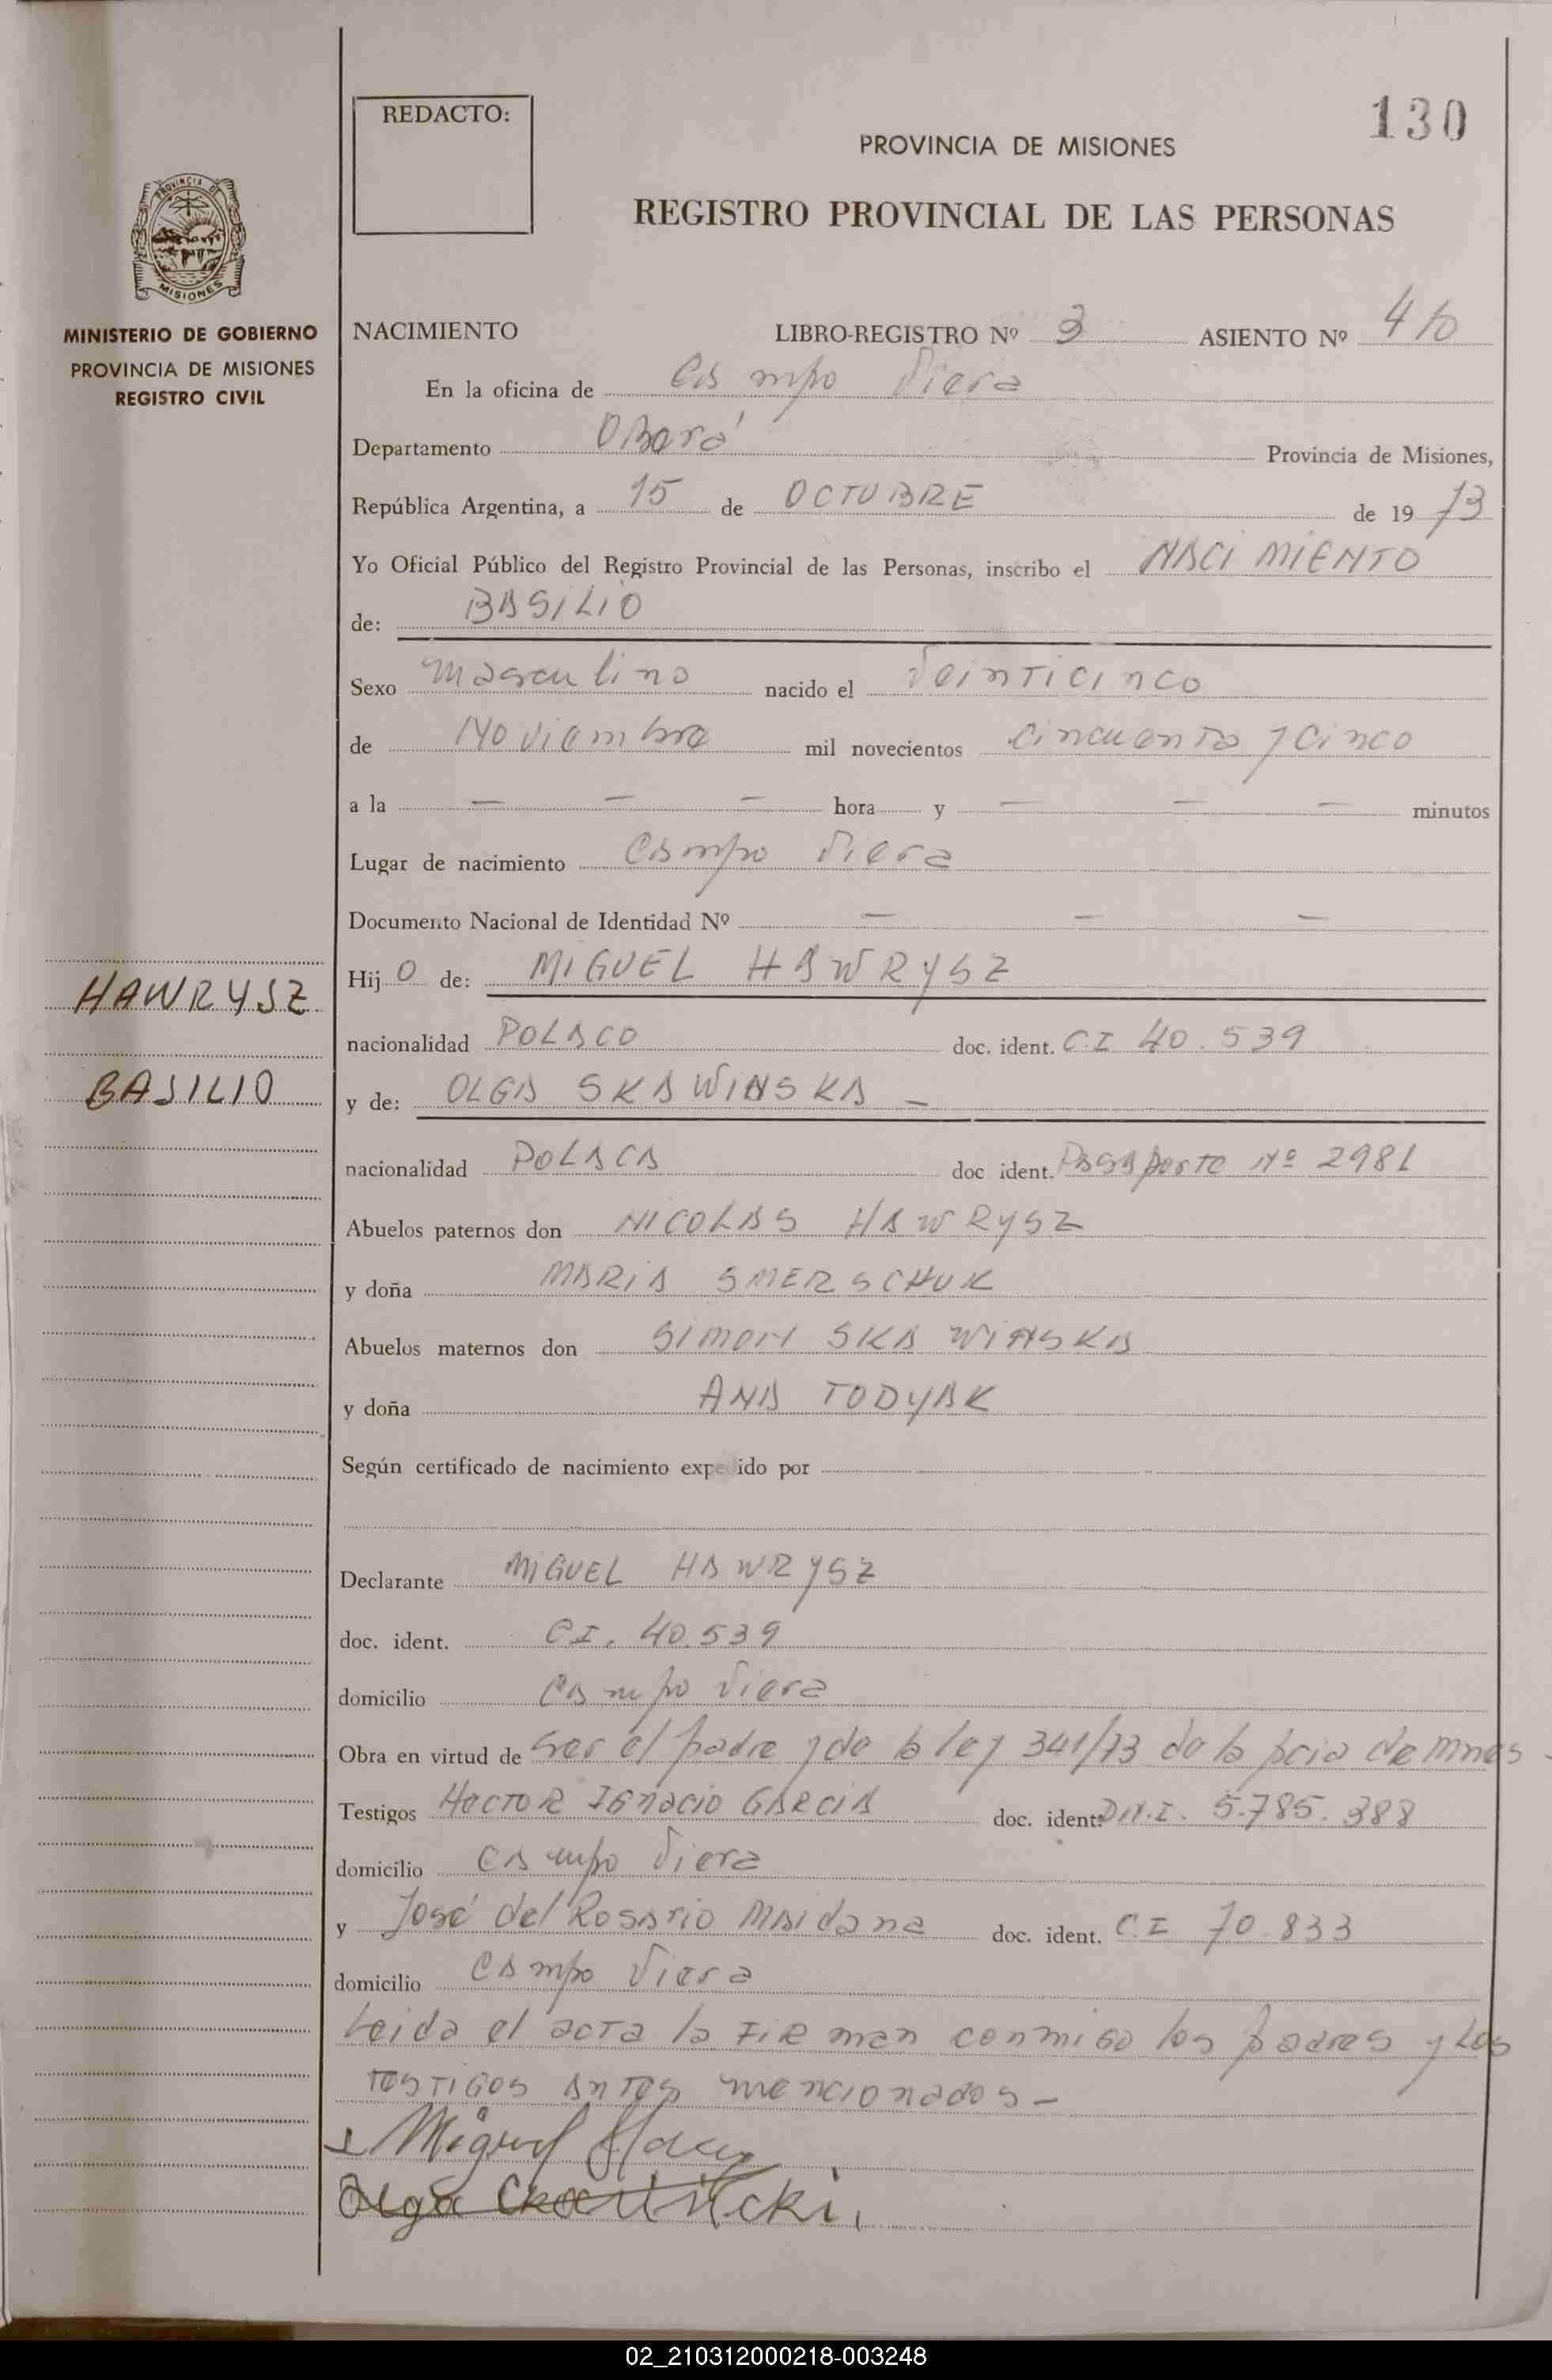 130
REDACTO:
PROVINCIA DE MISIONES
REGISTRO PROVINCIAL DE LAS PERSONAS
PROVINCIA DE
MISIONES
MINISTERIO DE GOBIERNO
PROVINCIA DE MISIONES
REGISTRO CIVIL
NACIMIENTO LIBRO-REGISTRO Nº 3 ASIENTO Nº 410
En la oficina de Campo Viera
Departamento OBerá Provincia de Misiones,
República Argentina, a 15 de OCTUBRE de 19 73
Yo Oficial Público del Registro Provincial de las Personas, inscribo el NACIMIENTO
de: BASILIO
Sexo masculino nacido el veinticinco
de Noviembre mil novecientos cincuenta y cinco
a la — — — hora y — — — minutos
Lugar de nacimiento Campo Viera
Documento Nacional de Identidad Nº — — —
Hij o de: MIGUEL HAWRYSZ
HAWRYSZ
nacionalidad POLACO doc. ident. C.I 40.539
BASILIO
y de: OLGA SKAWINSKA —
nacionalidad POLACA doc ident. Pasaporte Nº 2981
Abuelos paternos don NICOLAS HAWRYSZ
y doña MARIA SMERSCHUK
Abuelos maternos don SIMON SKAWINSKA
y doña ANA TODYAK
Según certificado de nacimiento expedido por
Declarante MIGUEL HAWRYSZ
doc. ident. C.I. 40.539
domicilio Campo Viera
Obra en virtud de ser el padre y de la ley 341/73 de la pcia de Mnes -
Testigos Hector Ignacio GARCIA doc. ident: D.N.I. 5.785.388
domicilio Campo Viera
y José del Rosario Maidana doc. ident. C.I 70.833
domicilio Campo Viera
Leida el acta la FIRman conmigo los padres y Los
testigos antes mencionados -
Miguel
Olga
02_210312000218-003248